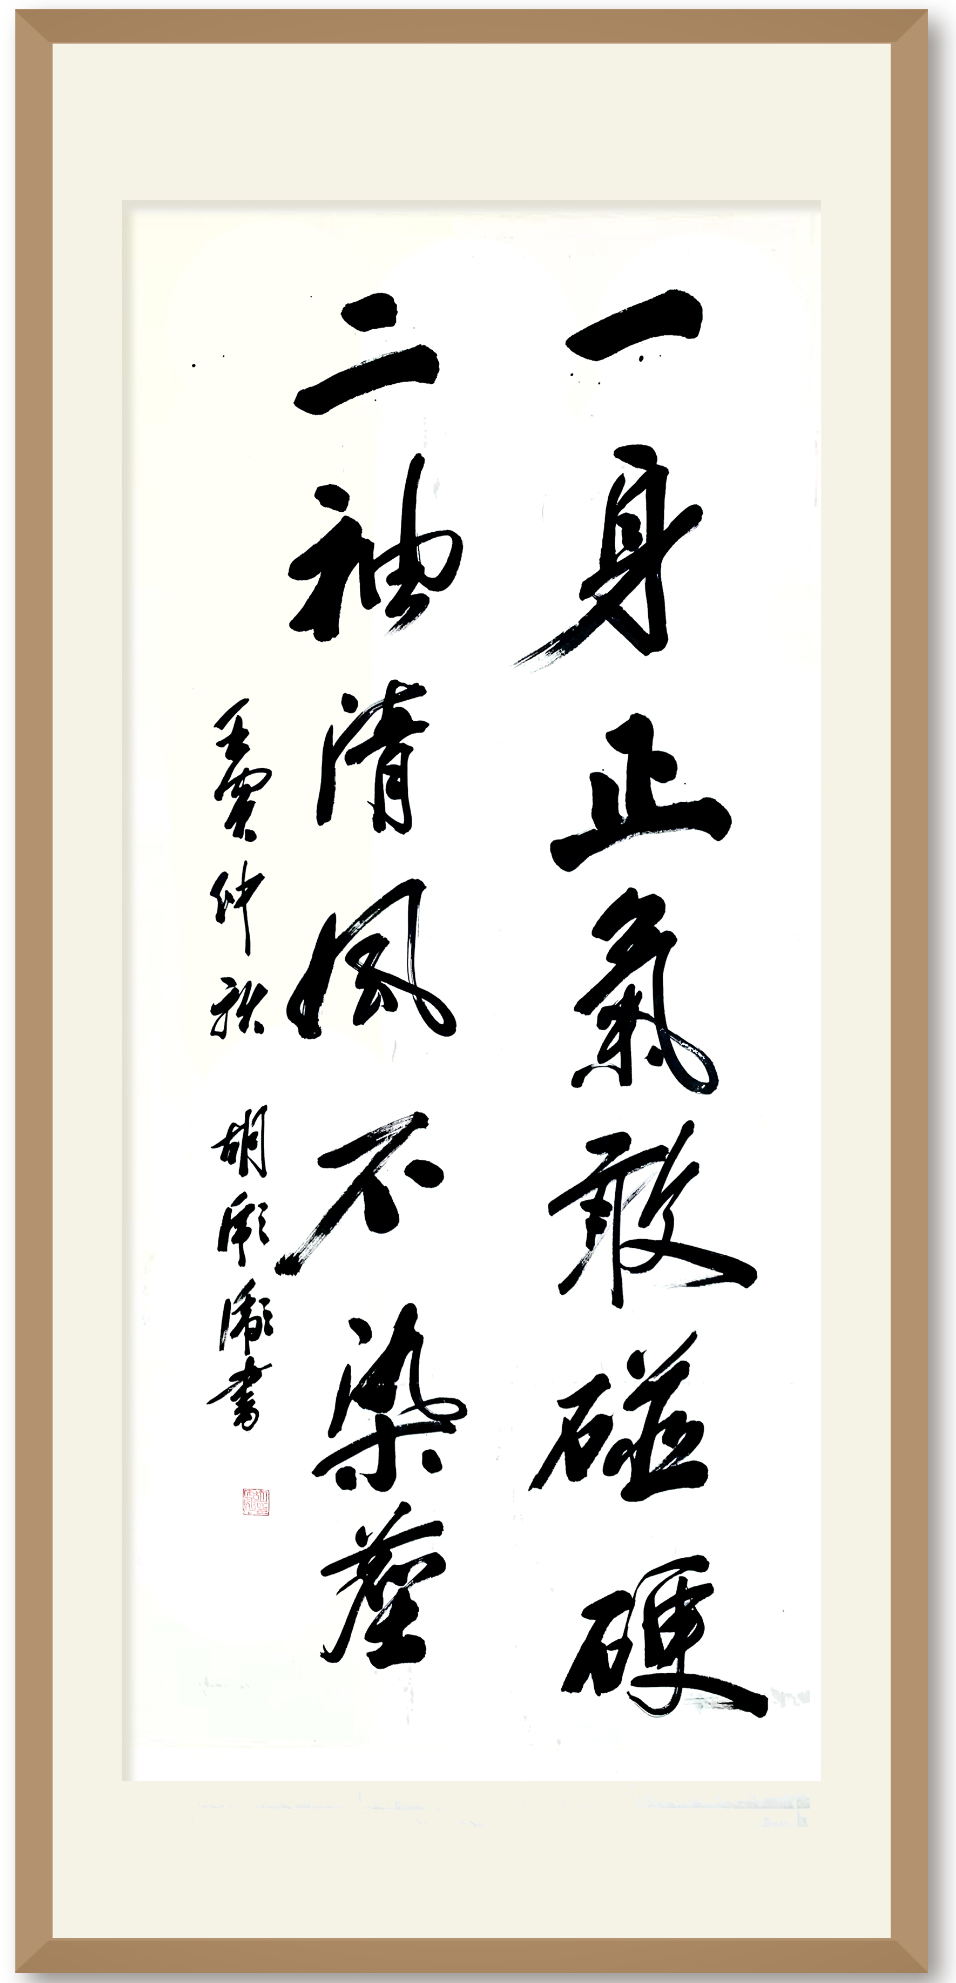 一身正氣敢碰硬
二袖清風不染塵
壬寅仲秋 胡彪濊書